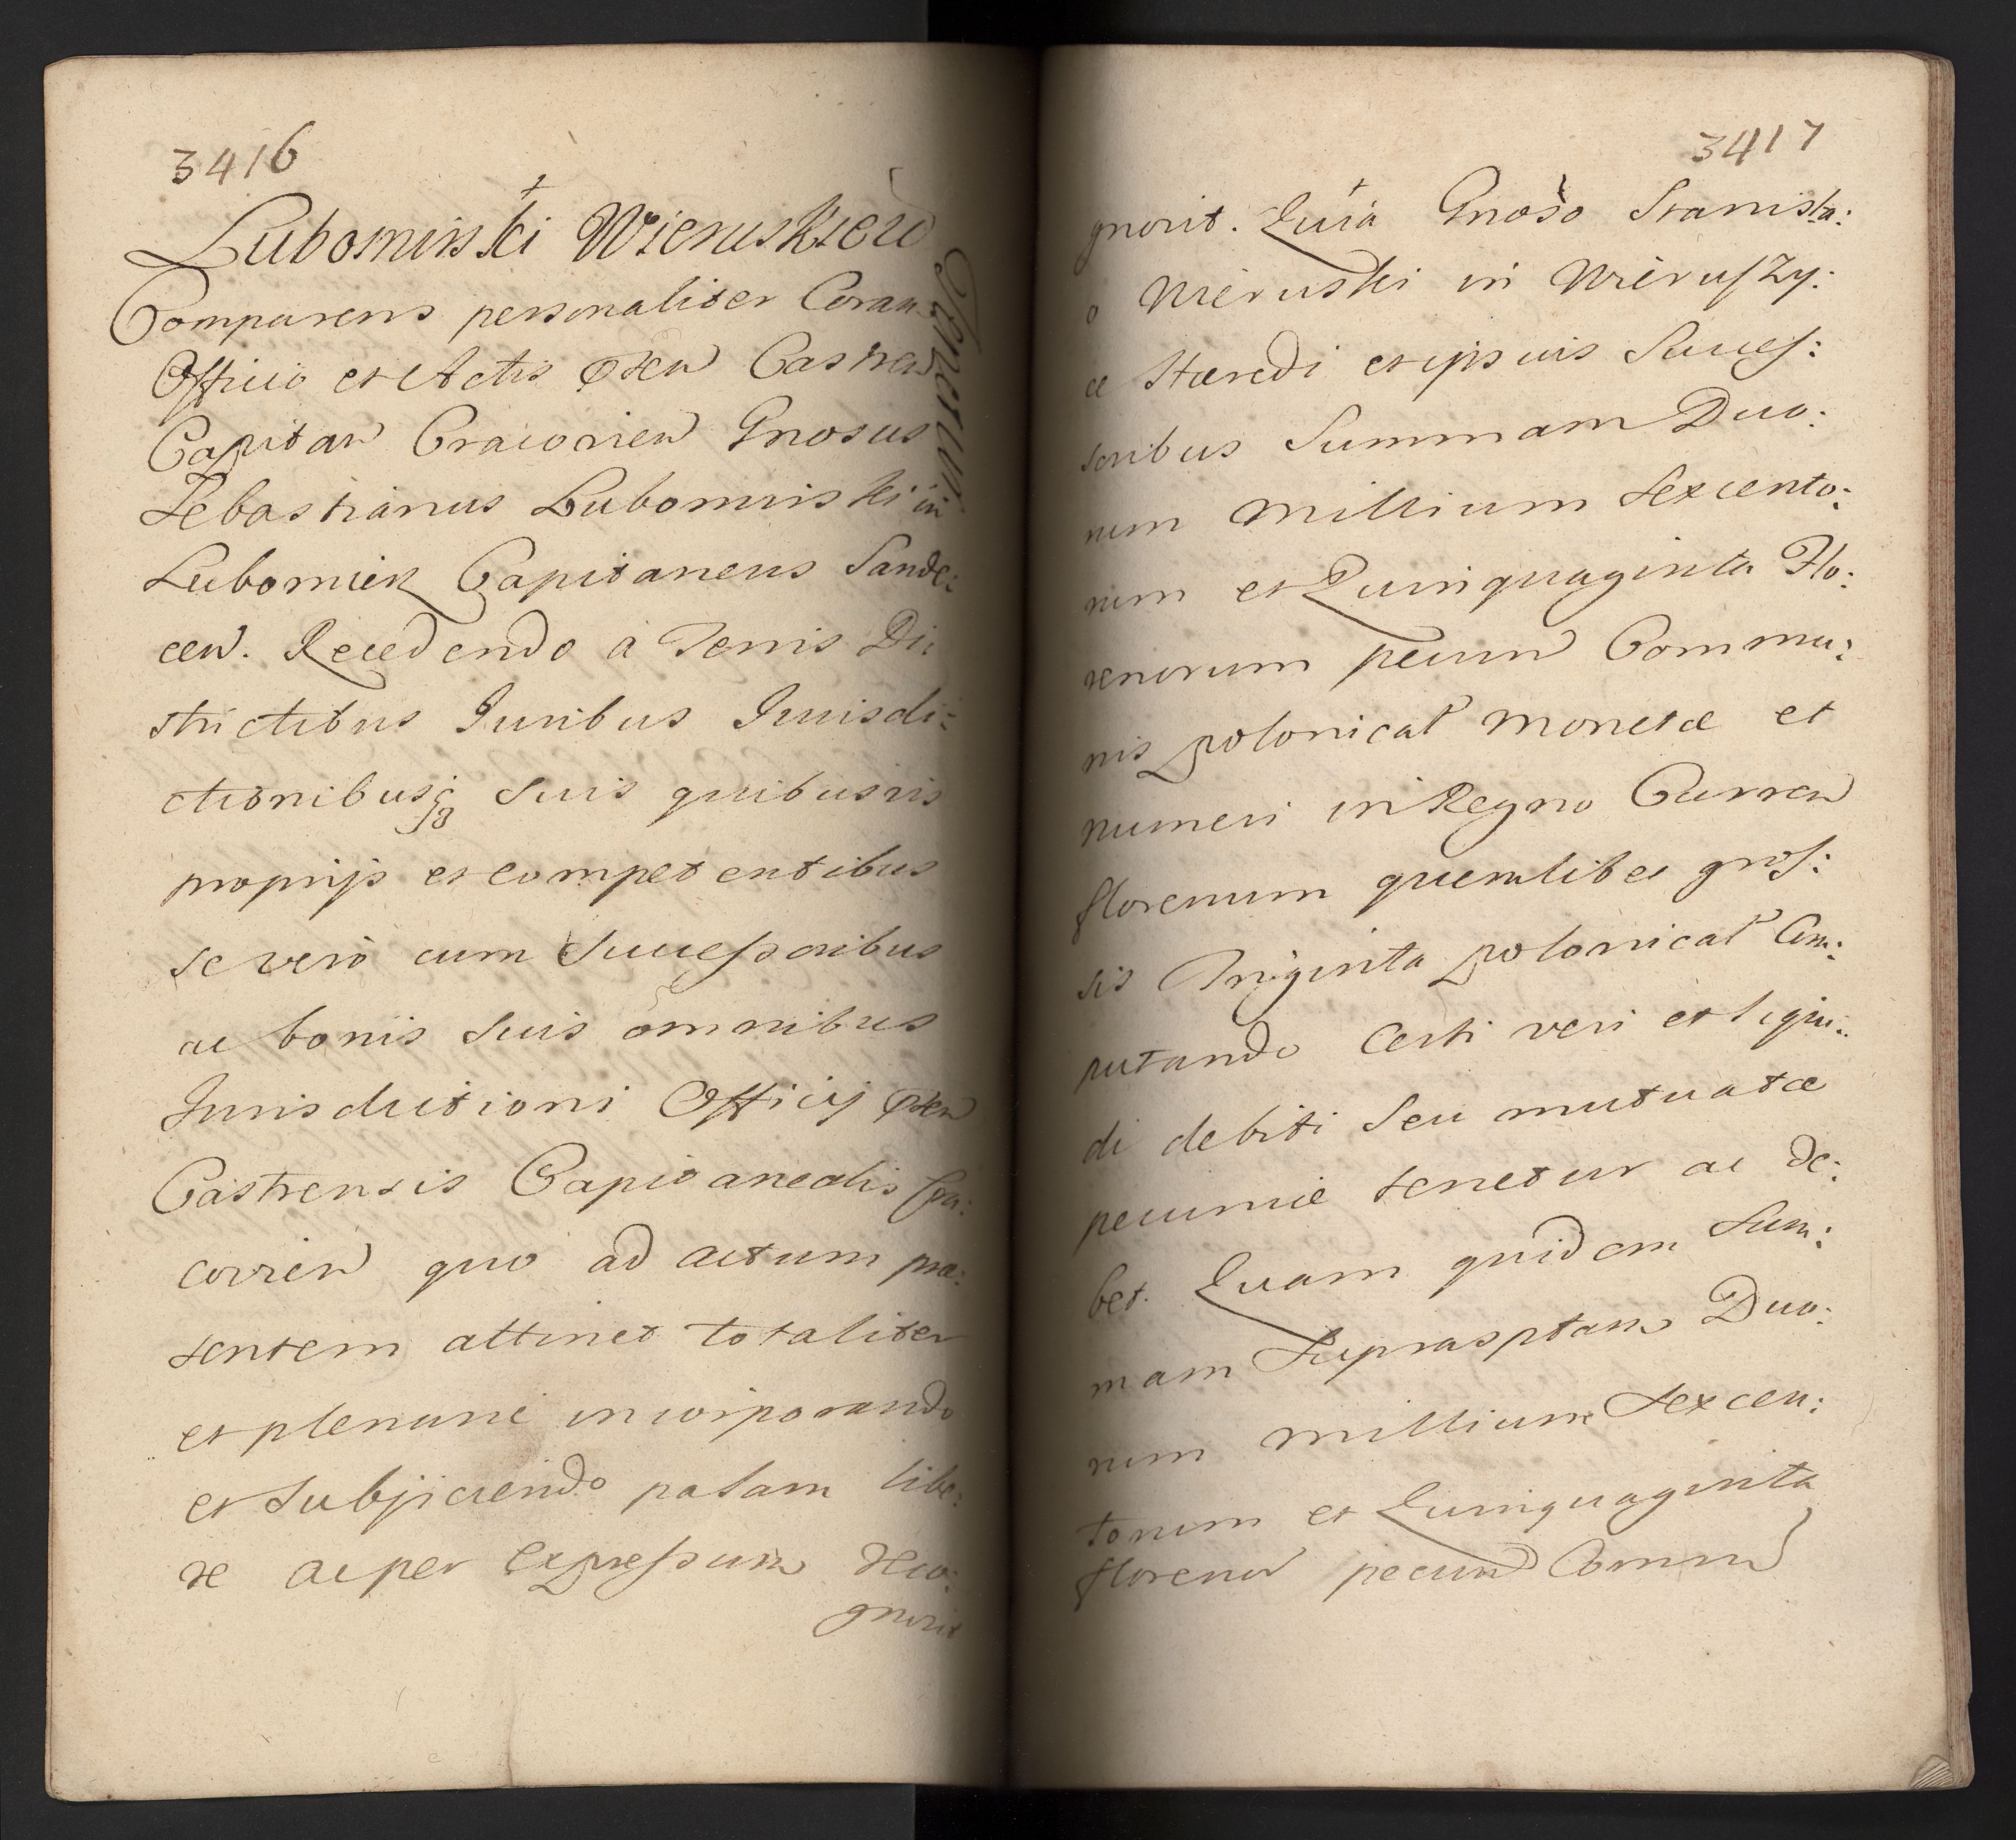 3416
Lubomirski Wieruskiew
Comparens personaliter Coram
Officio et Actis Pnten Castren
Capitan Cracovien Gnosus
Sebastianus Lubomirski in
Lubomierz Capitaneus Sande:
cen. Recedendo a Terris Di:
strictibus Juribus Jurisdi:
ctionibusq; suis quibusvis
proprijs et competentibus
se vero cum Successoribus
ac bonis suis omnibus
Jurisdictioni Officij Pnten
Castrensis Capitanealis Cra:
covien quo ad actum præ:
sentem attinet totaliter
et plenarie incorporando
et Subjiciendo palam libe:
re ac per expressum reco:
gnovit
3417
gnovit. Quia Gnoso Stanisla:
o Wieruski in Wieruszy:
ce Hæredi et ipsius Succes:
soribus Summam Duo:
rum Millium Sexcento:
rum et Quinquaginta Flo:
renorum pecun Commu:
nis polonical Monetæ et
numeri in Regno Curren
florenum quemlibet gros:
sis Triginta polonical Com:
putando Certi veri et liqui:
di debiti Seu mutuatæ
pecuniæ tenetur ac de:
bet. Quam quidem Sum:
mam Suprasptam Duo:
rum Millium Sexcen:
torum et Quinquaginta
floreno pecun Commu